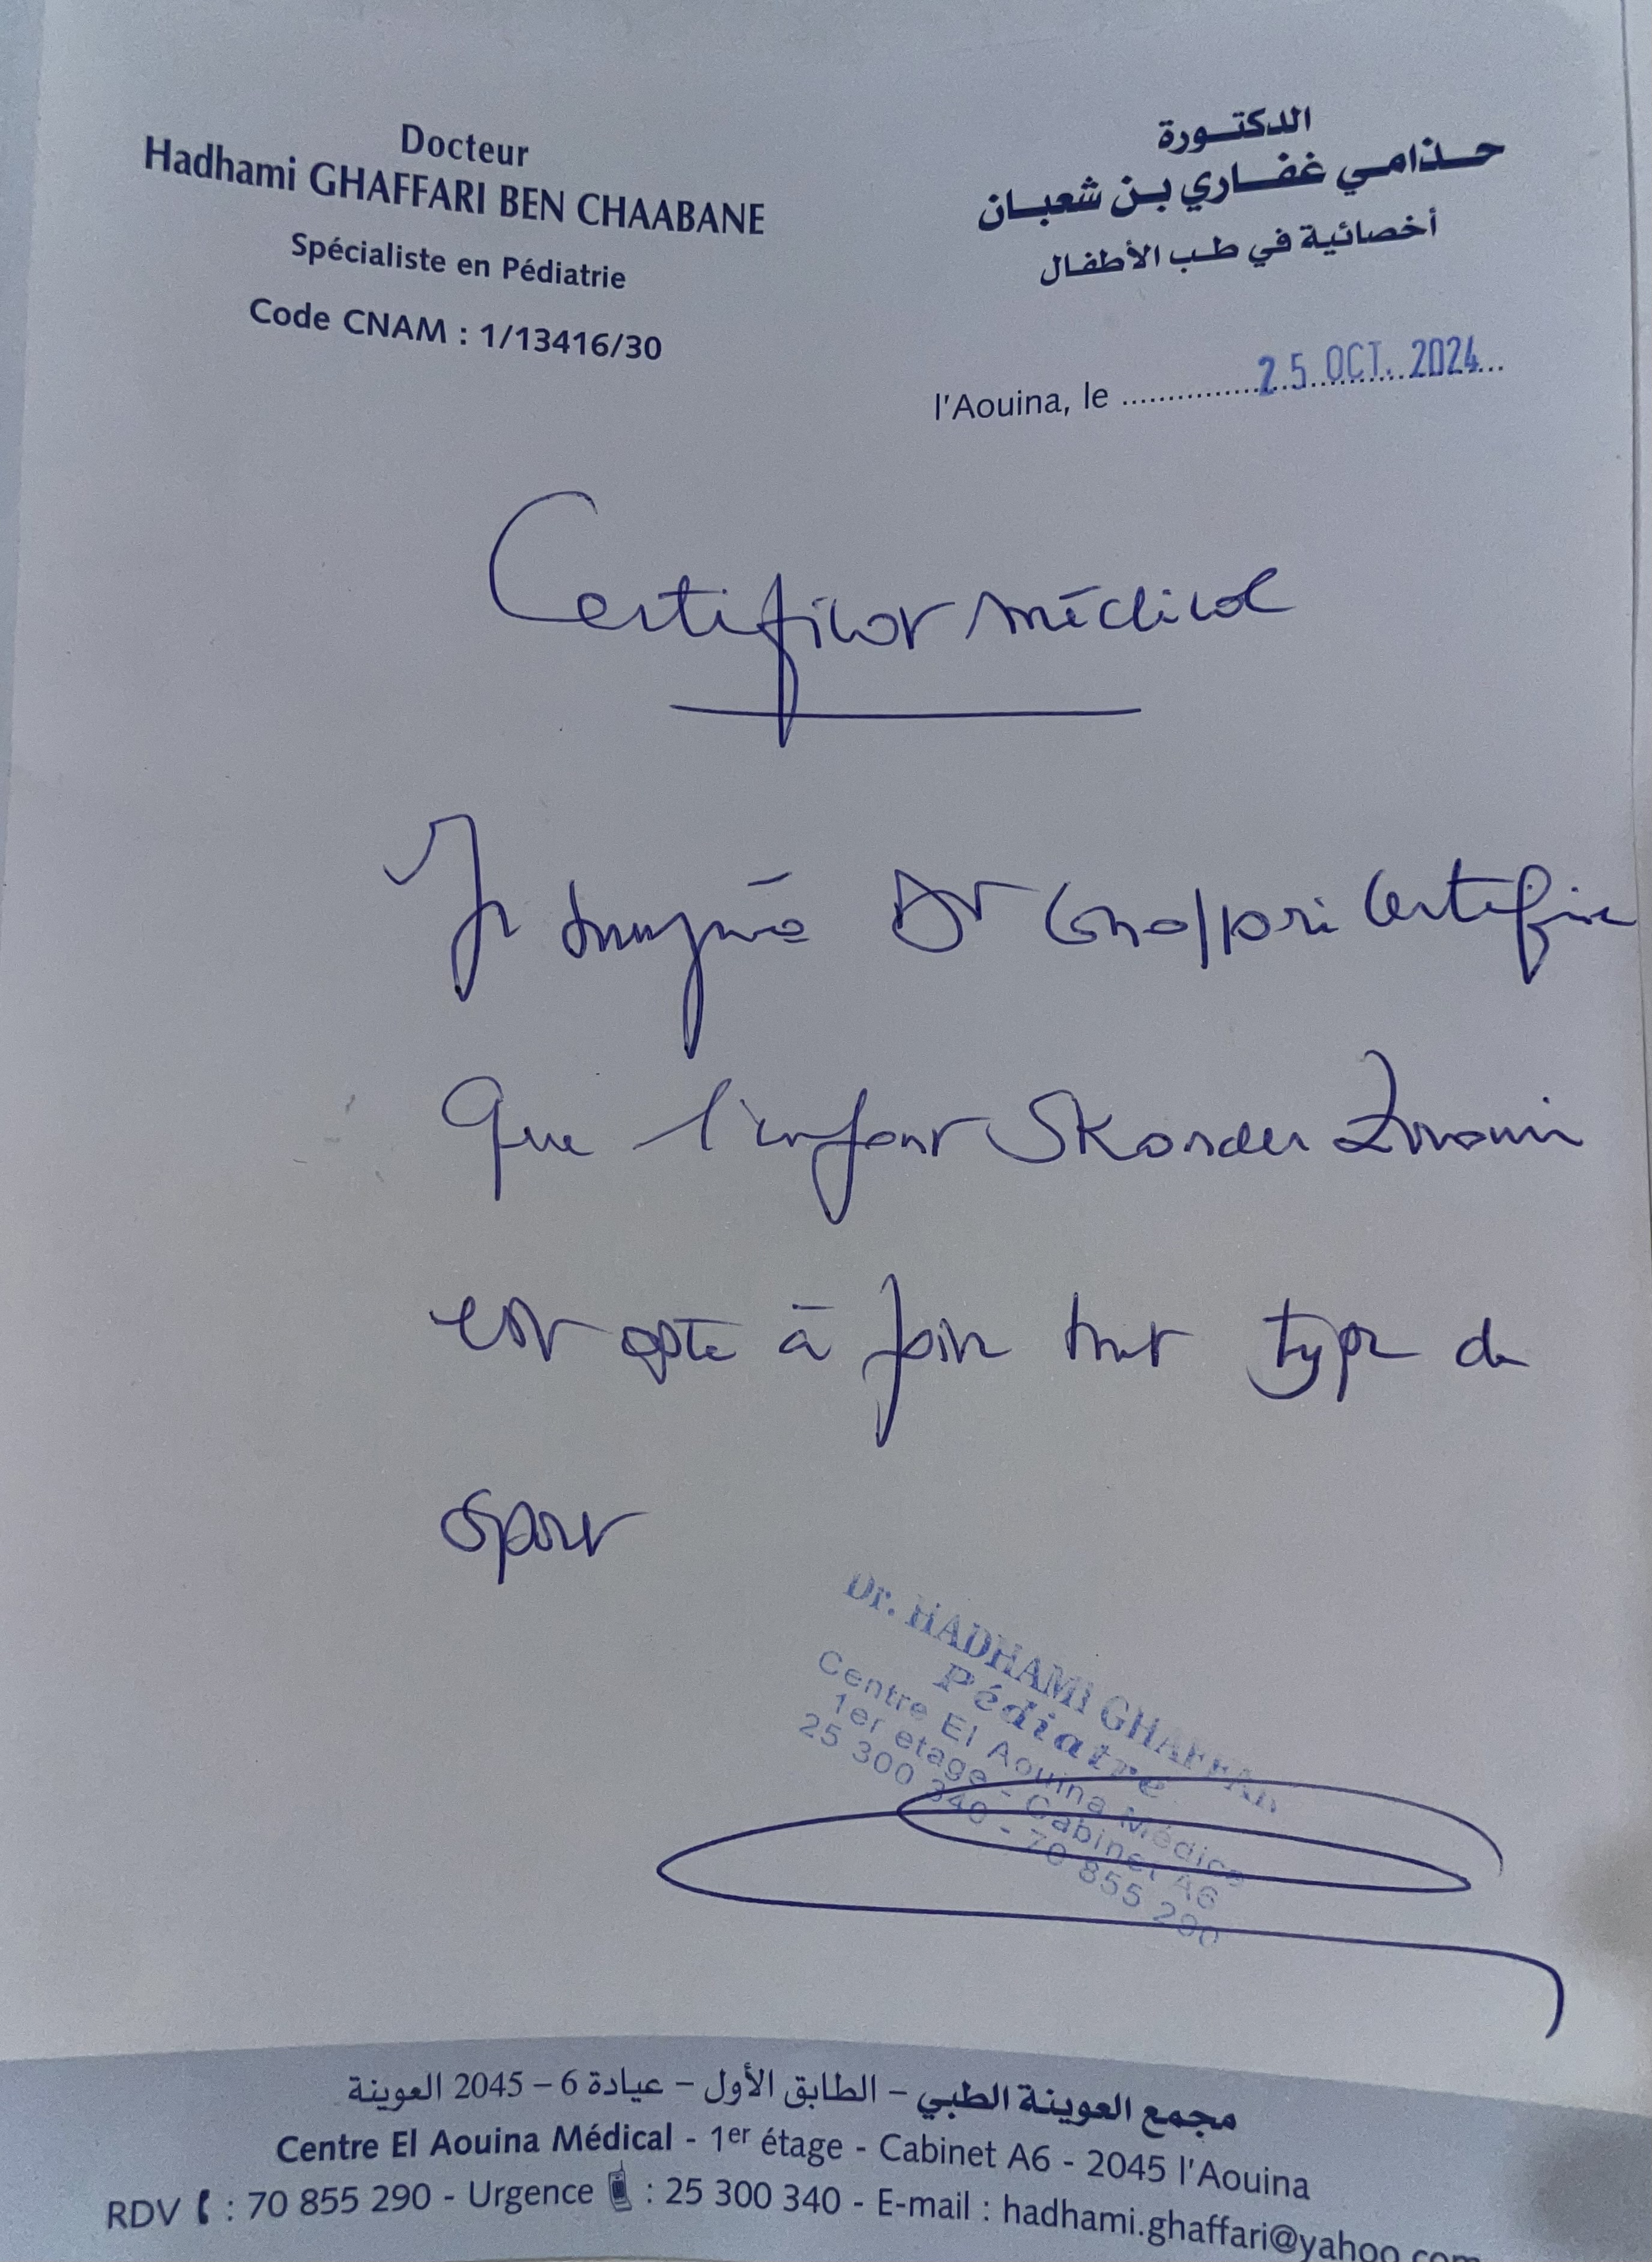 Docteur
Hadhami GHAFFARI BEN CHAABANE
Spécialiste en Pédiatrie
Code CNAM : 1/13416/30
الدكتورة
حذامي غفاري بن شعبان
أخصائية في طب الأطفال
l'Aouina, le 25 OCT. 2024
Certificat médical
Je soussigné Dr Ghaffari certifie
que l'enfant Skander
est apte à faire tout type de
sport
Dr. HADHAMI GHAFFARI
Pédiatre
Centre El Aouina Médical
1er etage - Cabinet A6
25 300 340 - 70 855 290
مجمع العوينة الطبي – الطابق الأول – عيادة 6 – 2045 العوينة
Centre El Aouina Médical - 1er étage - Cabinet A6 - 2045 l'Aouina
RDV : 70 855 290 - Urgence : 25 300 340 - E-mail : hadhami.ghaffari@yahoo.com